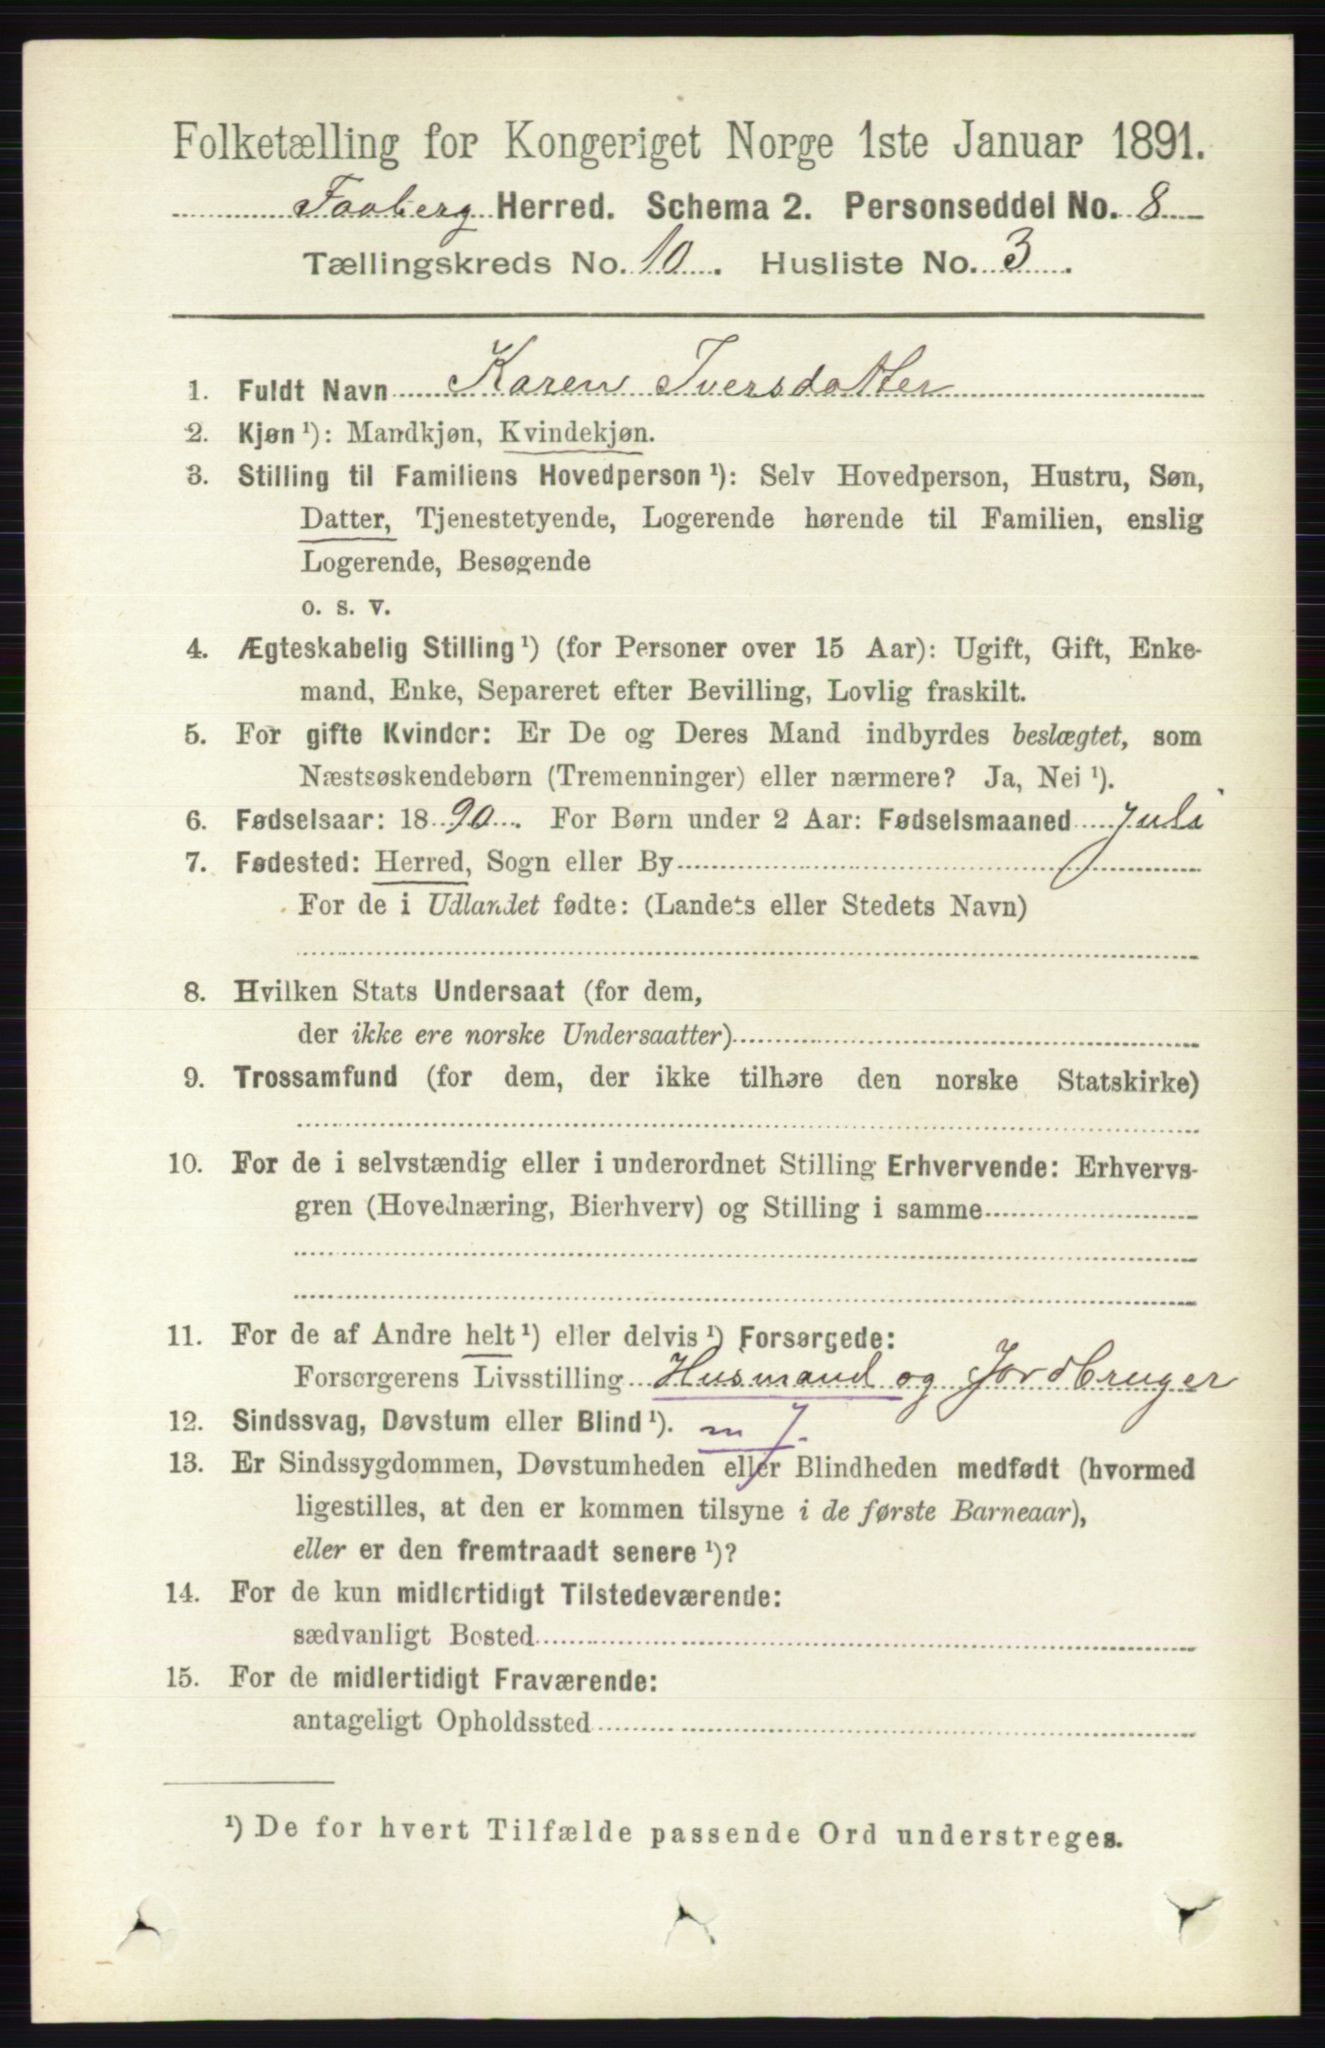 Folketælling for Kongeriget Norge 1ste Januar 1891.
Faaberg Herred. Schema 2. Personseddel No. 8
Tællingskreds No. 10. Husliste No. 3.
1. Fuldt Navn Karen Iversdatter
2. Kjøn ¹): Mandkjøn, Kvindekjøn.
3. Stilling til Familiens Hovedperson ¹): Selv Hovedperson, Hustru, Søn,
Datter, Tjenestetyende, Logerende hørende til Familien, enslig
Logerende, Besøgende
o. s. v.
4. Ægteskabelig Stilling ¹) (for Personer over 15 Aar): Ugift, Gift, Enke-
mand, Enke, Separeret efter Bevilling, Lovlig fraskilt.
5. For gifte Kvinder: Er De og Deres Mand indbyrdes beslægtet, som
Næstsøskendebørn (Tremenninger) eller nærmere? Ja, Nei ¹).
6. Fødselsaar: 1890. For Børn under 2 Aar: Fødselsmaaned Juli
7. Fødested: Herred, Sogn eller By
For de i Udlandet fødte: (Landets eller Stedets Navn)
8. Hvilken Stats Undersaat (for dem,
der ikke ere norske Undersaatter)
9. Trossamfund (for dem, der ikke tilhøre den norske Statskirke)
10. For de i selvstændig eller i underordnet Stilling Erhvervende: Erhvervs-
gren (Hovednæring, Bierhverv) og Stilling i samme
11. For de af Andre helt ¹) eller delvis ¹) Forsørgede:
Forsørgerens Livsstilling Husmand og Jordbruger
12. Sindssvag, Døvstum eller Blind ¹). m J.
13. Er Sindssygdommen, Døvstumheden eller Blindheden medfødt (hvormed
ligestilles, at den er kommen tilsyne i de første Barneaar),
eller er den fremtraadt senere ¹)?
14. For de kun midlertidigt Tilstedeværende:
sædvanligt Bosted
15. For de midlertidigt Fraværende:
antageligt Opholdssted
¹) De for hvert Tilfælde passende Ord understreges.